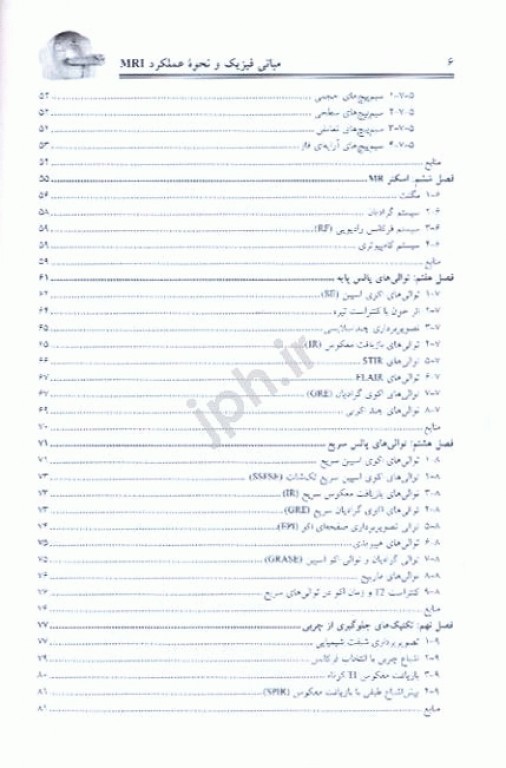 ۶ مبانی فیزیک و نحوهٔ عملکرد MRI
۵-۷-۱ سیم‌پیچ‌های حجمی ۵۲
۵-۷-۲ سیم‌پیچ‌های سطحی ۵۲
۵-۷-۳ سیم‌پیچ‌های تمامی
۵-۷-۴ سیم‌پیچ‌های آرایه‌ای فاز ۵۳
منابع ۵۴
فصل ششم: اسکنر MR ۵۵
۶-۱ مگنت ۵۶
۶-۲ سیستم گرادیان ۵۸
۶-۳ سیستم فرکانس رادیویی (RF) ۵۹
۶-۴ سیستم کامپیوتری ۵۹
منابع ۵۹
فصل هفتم: توالی‌های پالس پایه ۶۱
۷-۱ توالی‌های اکوی اسپین (SE) ۶۲
۷-۲ اثر خون با کنتراست تیره ۶۴
۷-۳ تصویربرداری چند سلایسی ۶۵
۷-۴ توالی‌های بازیافت معکوس (IR) ۶۵
۷-۵ توالی‌های STIR ۶۶
۷-۶ توالی‌های FLAIR ۶۷
۷-۷ توالی‌های اکوی گرادیان (GRE) ۶۷
۷-۸ توالی‌های چند اکویی ۶۹
منابع ۷۰
فصل هشتم: توالی‌های پالس سریع ۷۱
۸-۱ توالی‌های اکوی اسپین سریع ۷۱
۸-۲ توالی‌های اکوی اسپین سریع تک‌شات (SSFSE) ۷۳
۸-۳ توالی‌های بازیافت معکوس سریع (IR) ۷۳
۸-۴ توالی‌های اکوی گرادیان سریع (GRE) ۷۳
۸-۵ توالی تصویربرداری صفحه‌ای اکو (EPI) ۷۴
۸-۶ توالی‌های هیبریدی ۷۵
۸-۷ توالی گرادیان و توالی اکو اسپین (GRASE) ۷۵
۸-۸ توالی‌های مارپیچ ۷۶
۸-۹ کنتراست T2 و زمان اکو در توالی‌های سریع ۷۶
منابع ۷۶
فصل نهم: تکنیک‌های جلوگیری از چربی ۷۷
۹-۱ تصویربرداری شیفت شیمیایی ۷۷
۹-۲ اشباع چربی با انتخاب فرکانس ۷۹
۹-۳ بازیافت معکوس TI کوتاه ۸۰
۹-۴ پیش‌اشباع طیفی با بازیافت معکوس (SPIR) ۸۱
منابع ۸۱
jph.ir